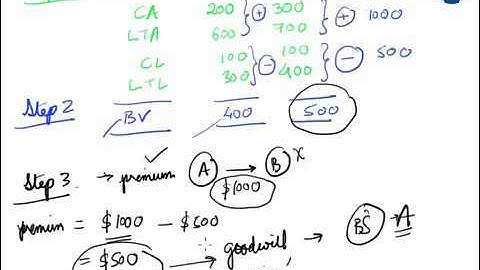 CA 200 300 1000
LTA 600 700
CL 100 100 500
LTL 300 400
Step 2 BV 400 500
Step 3 → premium A → B x
$1000
premium = $1000 - $500
= $500 → goodwill → BS A